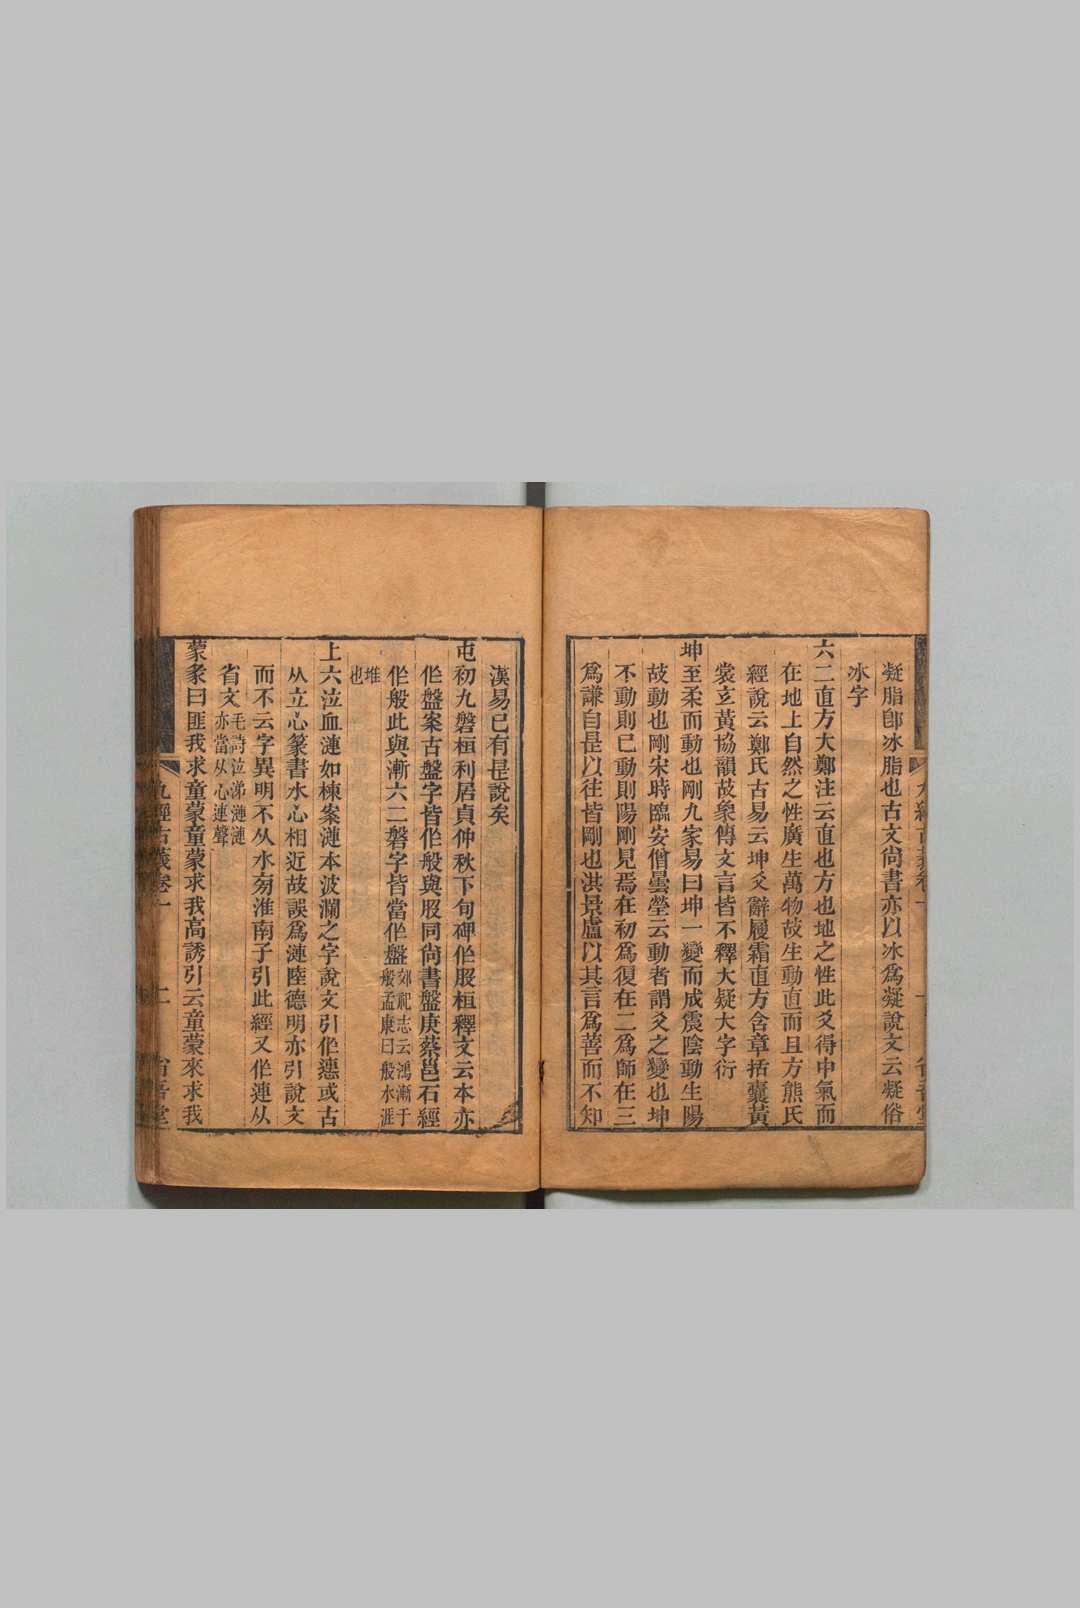 凝脂卽冰脂也古文尙書亦以冰爲凝說文云凝俗
冰字
六二直方大鄭注云直也方也地之性此爻得中氣而
在地上自然之性廣生萬物故生動直而且方熊氏
經說云鄭氏古易云坤爻辭履霜直方含章括囊黃
裳玄黃協韻故象傳文言皆不釋大疑大字衍
坤至柔而動也剛九家易曰坤一變而成震陰動生陽
故動也剛宋時臨安僧曇瑩云動者謂爻之變也坤
不動則已動則陽剛見焉在初爲復在二爲師在三
爲謙自是以往皆剛也洪景盧以其言爲善而不知
漢易已有是說矣
屯初九磐桓利居貞仲秋下旬碑作股桓釋文云本亦
作盤案古盤字皆作般與股同尙書盤庚蔡邕石經
作般此與漸六二磐字皆當作盤郊祀志云鴻漸于般孟康曰般水涯
堆也
上六泣血漣如棟案漣本波瀾之字說文引作㦁或古
从立心篆書水心相近故誤爲漣陸德明亦引說文
而不云字異明不从水㫄淮南子引此經又作連从
省文毛詩泣涕漣漣亦當从心連聲
蒙彖曰匪我求童蒙童蒙求我高誘引云童蒙來求我
九經古義卷一
二
省吾堂